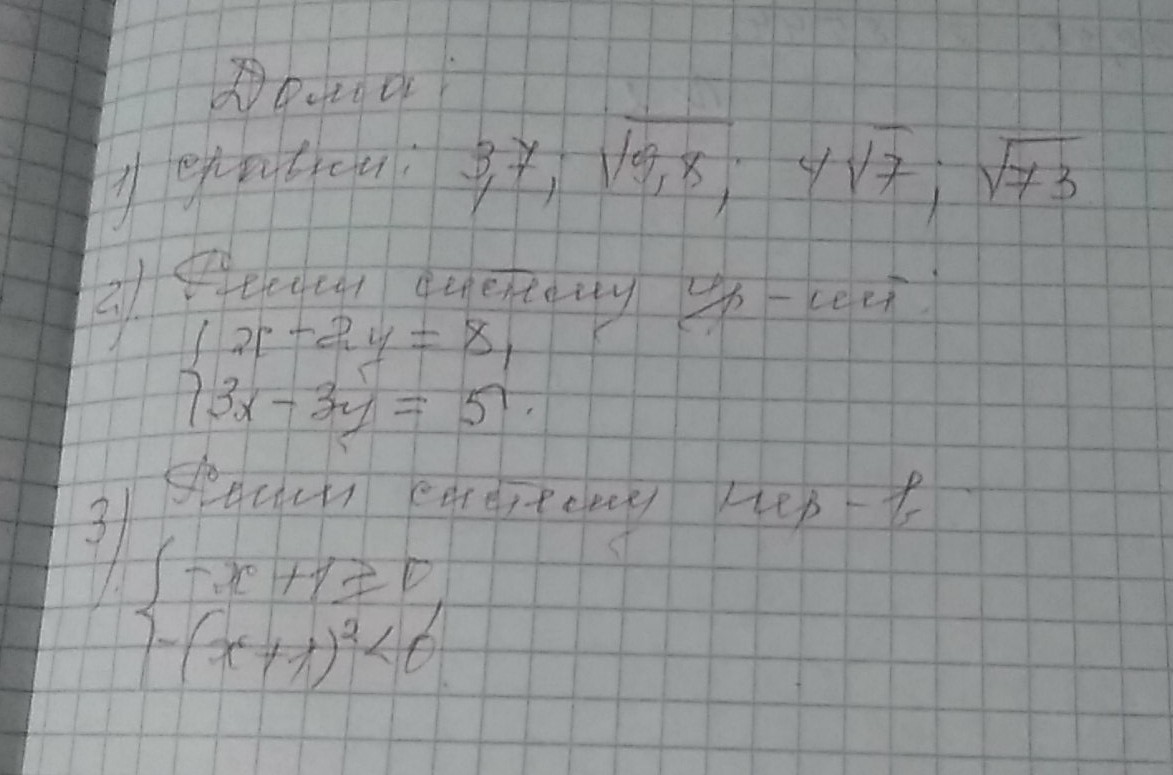 Дома:
1) сравни: 3,7; √9,8; 4√7; √73
2). Реши систему ур-ий:
{ x - 2y = 8,
3x - 3y = 5.
3). Реши систему нер-в
{ -x + 1 ≥ 0,
-(x+1)² < 6